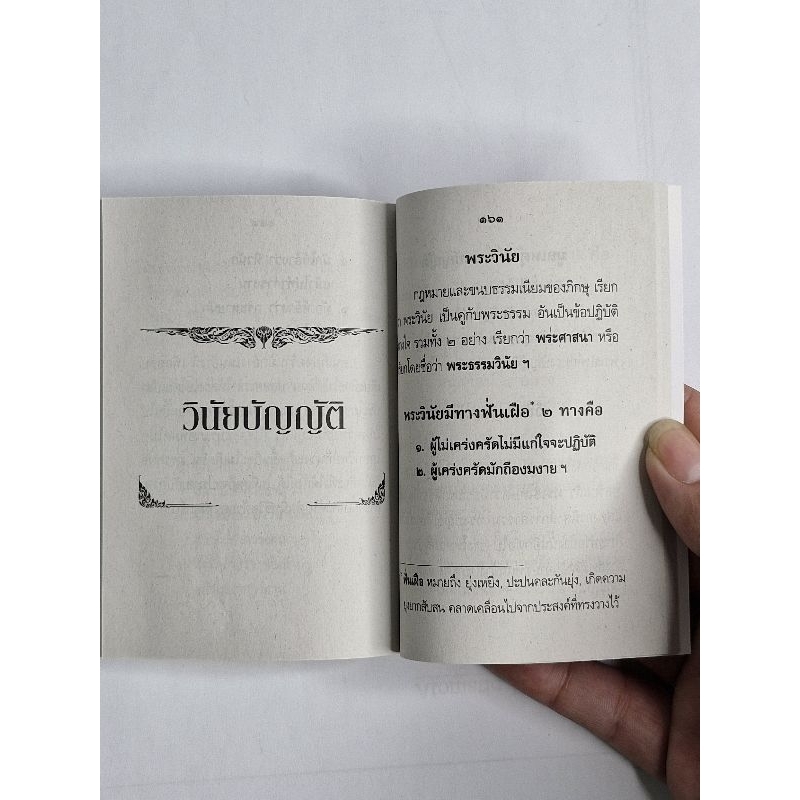 วินัยบัญญัติ
๑๖๑
พระวินัย
กฎหมายและขนบธรรมเนียมของภิกษุ เรียก
พระวินัย เป็นคู่กับพระธรรม อันเป็นข้อปฏิบัติ
รวมทั้ง ๒ อย่าง เรียกว่า พระศาสนา หรือ
โดยชื่อว่า พระธรรมวินัย ฯ
พระวินัยมีทางฟั่นเฝือ* ๒ ทางคือ
๑. ผู้ไม่เคร่งครัดไม่มีแก่ใจจะปฏิบัติ
๒. ผู้เคร่งครัดมักถืองมงาย ฯ
* ฟั่นเฝือ หมายถึง ยุ่งเหยิง, ปะปนคละกันยุ่ง, เกิดความ
สับสน คลาดเคลื่อนไปจากประสงค์ที่ทรงวางไว้